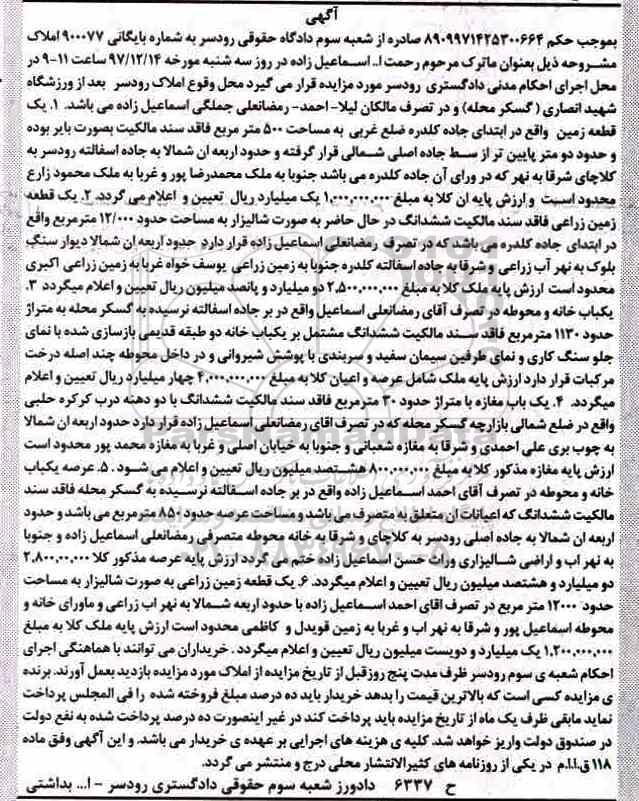 آگهی
بموجب حکم ۸۹۰۹۹۷۱۴۲۵۳۰۰۶۶۴ صادره از شعبه سوم دادگاه حقوقی رودسر به شماره بایگانی ۹۰۰۰۷۷ املاک
مشروحه ذیل بعنوان ماترک مرحوم رحمت ا.. اسماعیل زاده در روز سه شنبه مورخه ۹۷/۱۲/۱۴ ساعت ۱۱-۹ در
محل اجرای احکام مدنی دادگستری رودسر مورد مزایده قرار می گیرد محل وقوع املاک رودسر بعد از ورزشگاه
شهید انصاری ( گسکر محله) و در تصرف مالکان لیلا- احمد- رمضانعلی جملگی اسماعیل زاده می باشد. ۱. یک
قطعه زمین واقع در ابتدای جاده کلدره ضلع غربی به مساحت ۵۰۰ متر مربع فاقد سند مالکیت بصورت بایر بوده
و حدود دو متر پایین تر از سط جاده اصلی شمالی قرار گرفته و حدود اربعه ان شمالا به جاده اسفالته رودسر به
کلاچای شرقا به نهر که در ورای آن جاده کلدره می باشد جنوبا به ملک محمدرضا پور و غربا به ملک محمود زارع
محدود است و ارزش پایه ان کلا به مبلغ ۱,۰۰۰,۰۰۰,۰۰۰ یک میلیارد ریال تعیین و اعلام می گردد. ۲. یک قطعه
زمین زراعی فاقد سند مالکیت ششدانگ در حال حاضر به صورت شالیزار به مساحت حدود ۱۲/۰۰۰ مترمربع واقع
در ابتدای جاده کلدره می باشد که در تصرف رمضانعلی اسماعیل زاده قرار دارد حدود اربعه ان شمالا دیوار سنگ
بلوک به نهر آب زراعی و شرقا به جاده اسفالته کلدره جنوبا به زمین زراعی یوسف خواه غربا به زمین زراعی اکبری
محدود است ارزش پایه ملک کلا به مبلغ ۲,۵۰۰,۰۰۰,۰۰۰ دو میلیارد و پانصد میلیون ریال تعیین و اعلام میگردد ۳.
یکباب خانه و محوطه در تصرف آقای رمضانعلی اسماعیل واقع در بر جاده اسفالته نرسیده به گسکر محله به متراژ
حدود ۱۱۳۰ مترمربع فاقد سند مالکیت ششدانگ مشتمل بر یکباب خانه دو طبقه قدیمی بازسازی شده با نمای
جلو سنگ کاری و نمای طرفین سیمان سفید و سربندی با پوشش شیروانی و در داخل محوطه چند اصله درخت
مرکبات قرار دارد ارزش پایه ملک شامل عرصه و اعیان کلا به مبلغ ۴,۰۰۰,۰۰۰,۰۰۰ چهار میلیارد ریال تعیین و اعلام
میگردد. ۴. یک باب مغازه با متراژ حدود ۳۰ مترمربع فاقد سند مالکیت ششدانگ با دو دهنه درب کرکره حلبی
واقع در ضلع شمالی بازارچه گسکر محله که در تصرف اقای رمضانعلی اسماعیل زاده قرار دارد حدود اربعه ان شمالا
به چوب بری علی احمدی و شرقا به مغازه شعبانی و جنوبا به خیابان اصلی و غربا به مغازه محمد پور محدود است
ارزش پایه مغازه مذکور کلا به مبلغ ۸۰۰,۰۰۰,۰۰۰ هشتصد میلیون ریال تعیین و اعلام می شود . ۵. عرصه یکباب
خانه و محوطه در تصرف آقای احمد اسماعیل زاده واقع در بر جاده اسفالته نرسیده به گسکر محله فاقد سند
مالکیت ششدانگ که اعیانات ان متعلق به متصرف می باشد و مساحت عرصه حدود ۸۵۰ مترمربع می باشد و حدود
اربعه ان شمالا به جاده اصلی رودسر به کلاچای و شرقا به خانه محوطه متصرفی رمضانعلی اسماعیل زاده و جنوبا
به نهر اب و اراضی شالیزاری وراث حسن اسماعیل زاده ختم می گردد ارزش پایه عرصه مذکور کلا ۲,۸۰۰,۰۰,۰۰۰
دو میلیارد و هشتصد میلیون ریال تعیین و اعلام میگردد. ۶. یک قطعه زمین زراعی به صورت شالیزار به مساحت
حدود ۱۲۰۰۰ متر مربع در تصرف اقای احمد اسماعیل زاده با حدود اربعه شمالا به نهر اب زراعی و ماورای خانه و
محوطه اسماعیل پور و شرقا به نهر اب و غربا به زمین قویدل و کاظمی محدود است ارزش پایه ملک کلا به مبلغ
۱,۲۰۰,۰۰۰,۰۰۰ یک میلیارد و دویست میلیون ریال تعیین و اعلام میگردد . خریداران می توانند با هماهنگی اجرای
احکام شعبه ی سوم رودسر ظرف مدت پنج روزقبل از تاریخ مزایده از املاک مورد مزایده بازدید بعمل آورند. برنده
ی مزایده کسی است که بالاترین قیمت را بدهد خریدار باید ده درصد مبلغ فروخته شده را فی المجلس پرداخت
نماید مابقی ظرف یک ماه از تاریخ مزایده باید پرداخت کند در غیر اینصورت ده درصد پرداخت شده به نفع دولت
در صندوق دولت واریز خواهد شد. کلیه ی هزینه های اجرایی بر عهده ی خریدار می باشد. و این آگهی وفق ماده
۱۱۸ ق.ا.ا.م در یکی از روزنامه های کثیرالانتشار محلی درج و منتشر می گردد.
ح ۶۳۳۷ دادورز شعبه سوم حقوقی دادگستری رودسر - ا... بداشتی